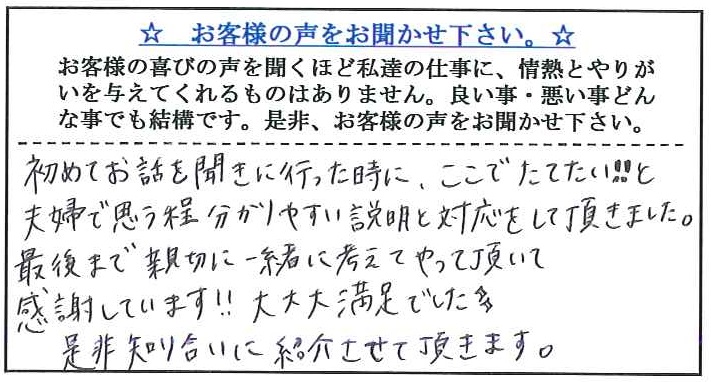 ☆ お客様の声をお聞かせ下さい。☆
お客様の喜びの声を聞くほど私達の仕事に、情熱とやりが
いを与えてくれるものはありません。良い事・悪い事どん
な事でも結構です。是非、お客様の声をお聞かせ下さい。
初めてお話を聞きに行った時に、ここでたてたい!!と
夫婦で思う程分かりやすい説明と対応をして頂きました。
最後まで親切に一緒に考えてやって頂いて
感謝しています!! 大大大満足でした
是非知り合いに紹介させて頂きます。